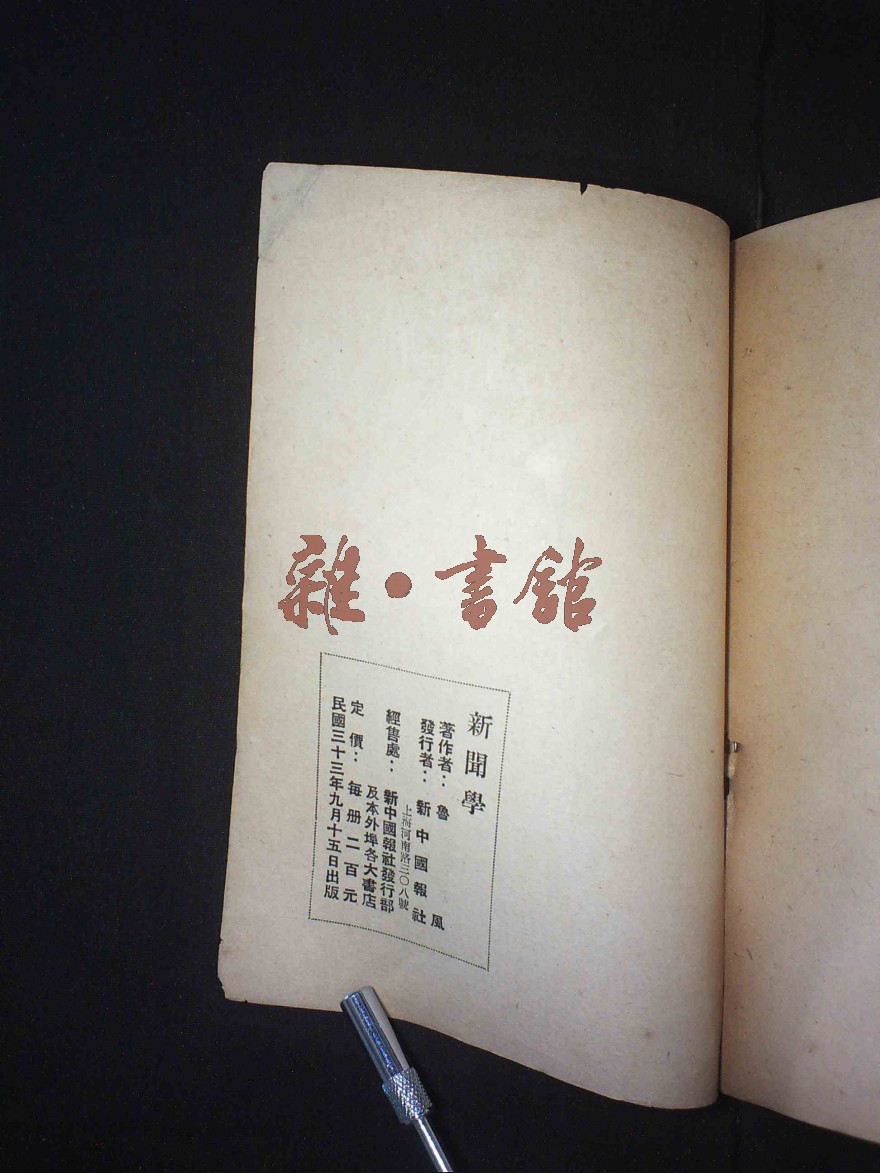 雜·書館
新聞學
著作者：魯風
發行者：新中國報社
上海河南路三〇八號
經售處：新中國報社發行部
及本外埠各大書店
定價：每册二百元
民國三十三年九月十五日出版